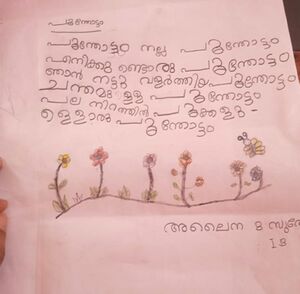 പൂന്തോട്ടം
പൂന്തോട്ടം നല്ല പൂന്തോട്ടം
എനിക്കു ണ്ടൊരു പൂന്തോട്ടം
ഞാൻ നട്ടു വളർത്തിയ പൂന്തോട്ടം
ചന്തമുള്ള പൂന്തോട്ടം
പല നിറത്തിൽ പൂക്കളു-
ള്ളൊരു പൂന്തോട്ടം
അലൈന
I B